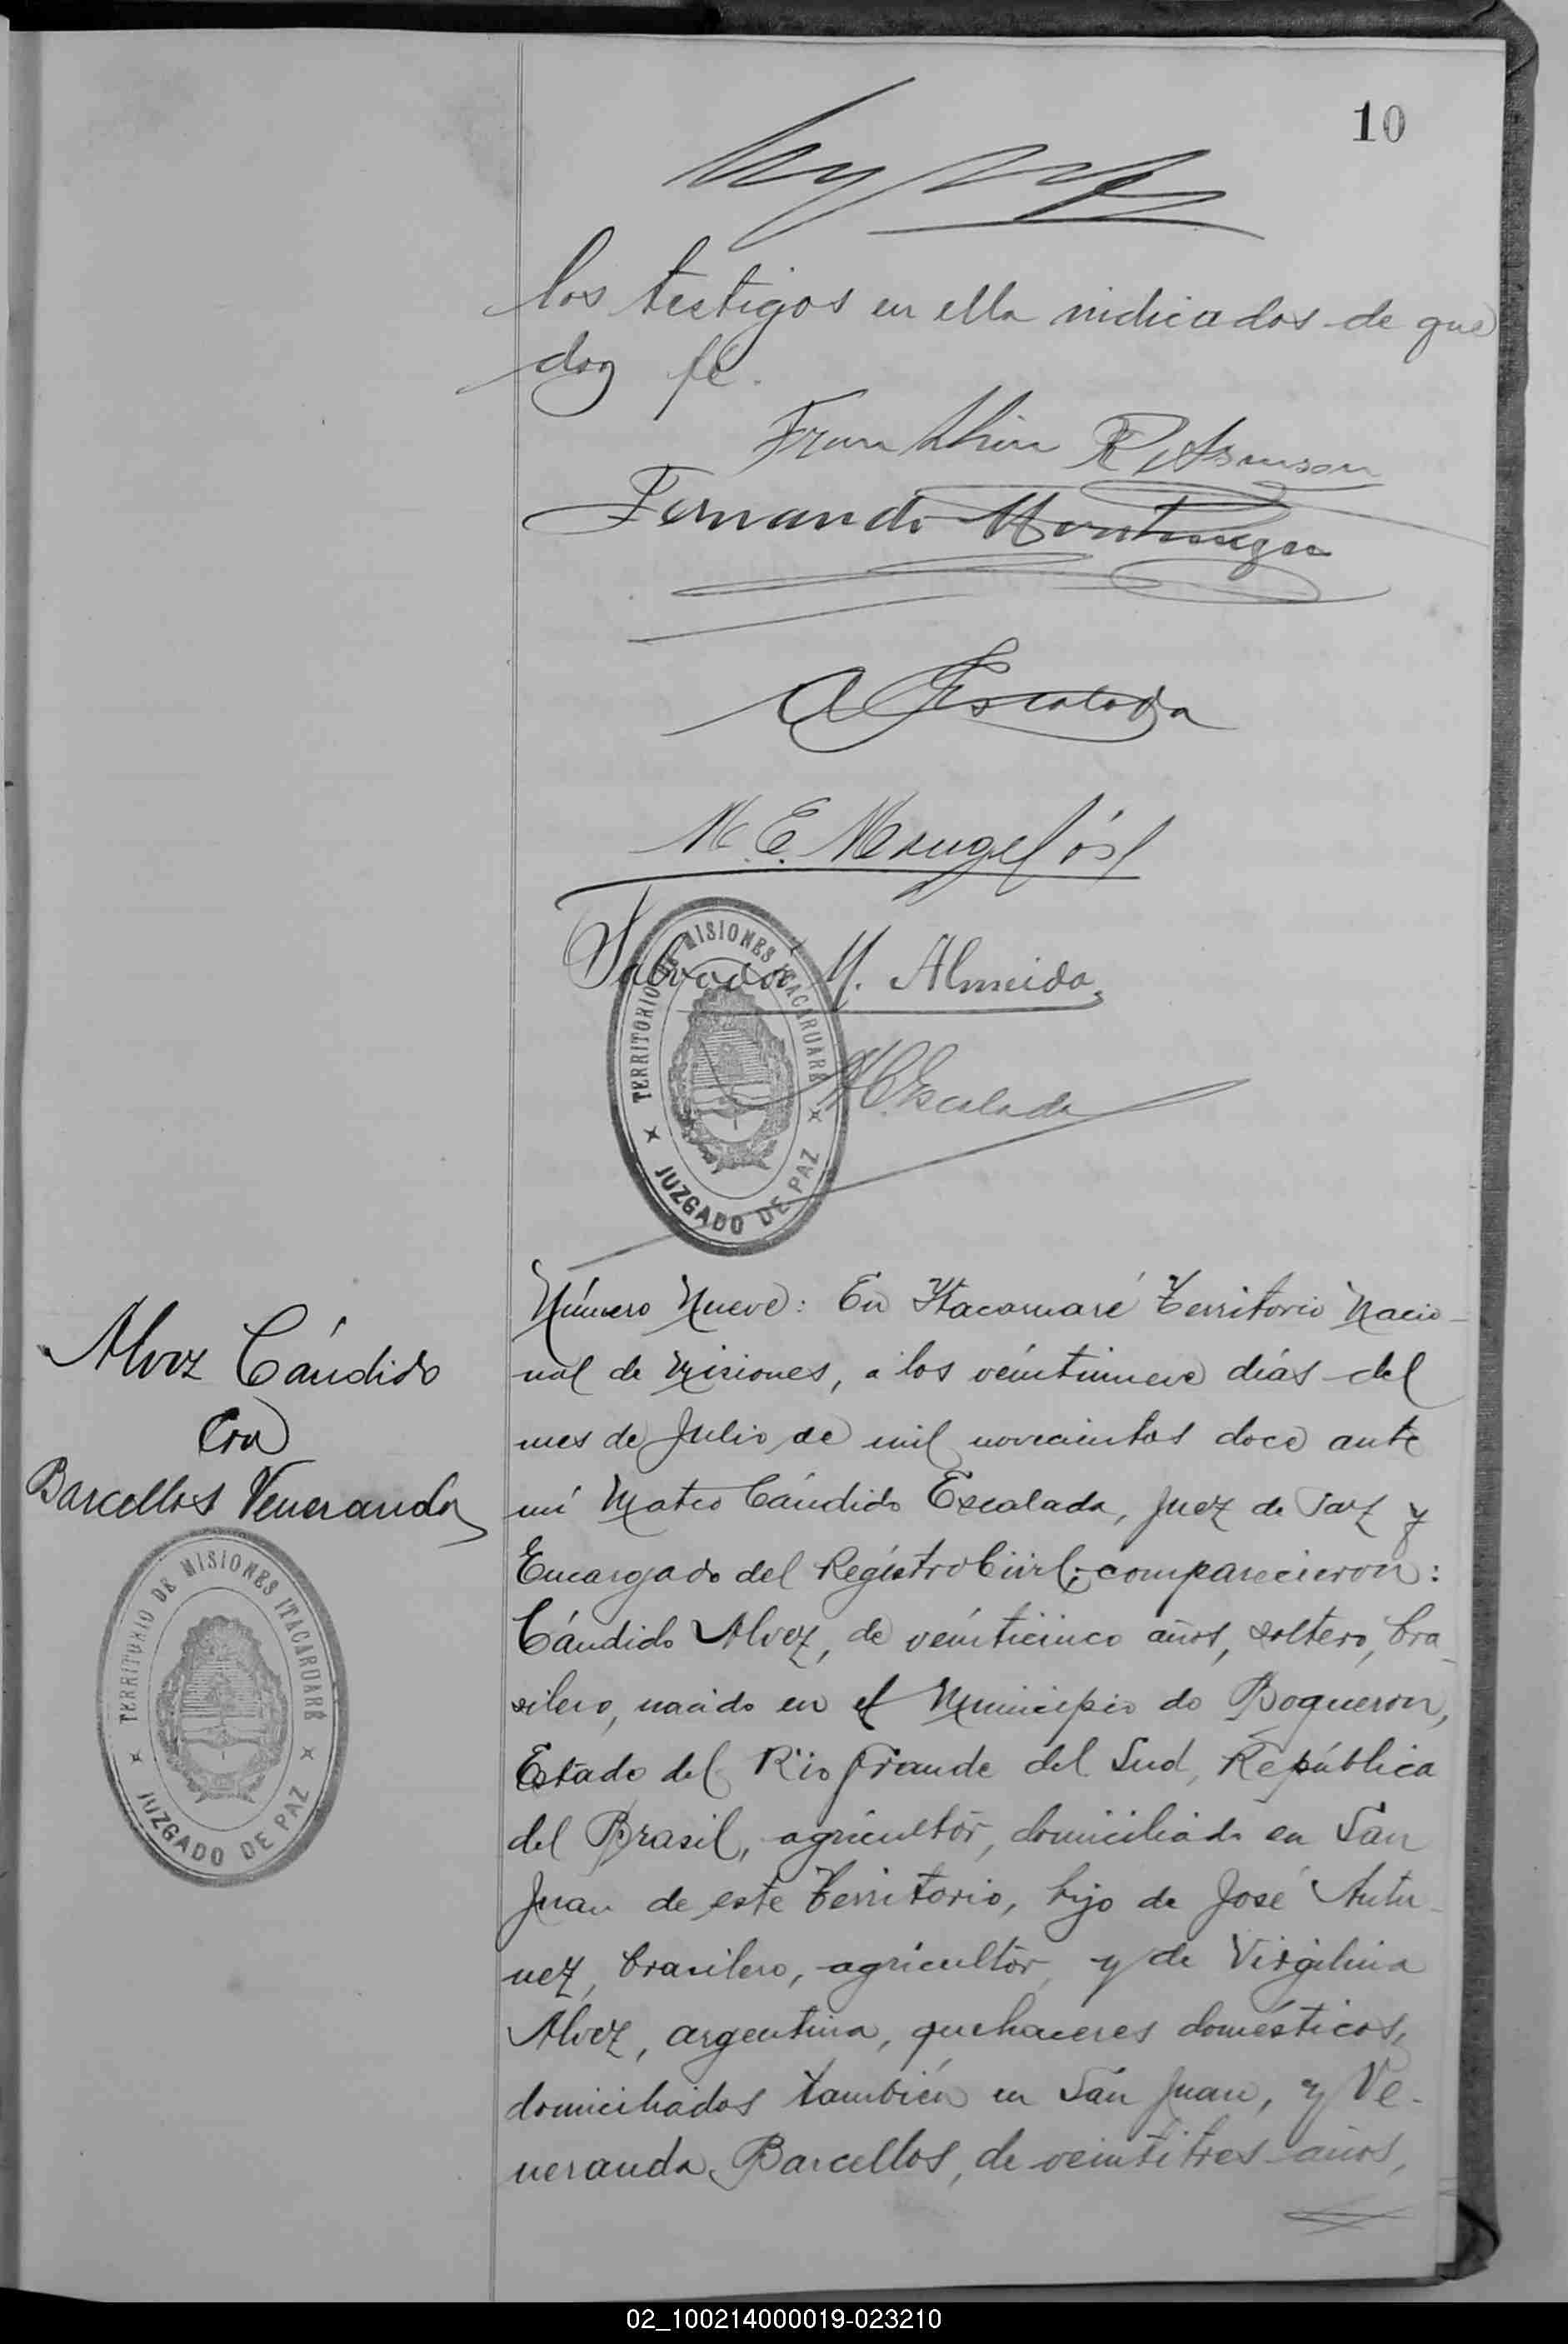 10
los testigos en ella indicados de que
doy fé.
Fernando
A Escalada
M. E.
Salvador M. Almeida
TERRITORIO DE MISIONES ITACARUARÉ
JUZGADO DE PAZ
M C Escalada
Alvez Cándido
con
Barcellos Veneranda
TERRITORIO DE MISIONES ITACARUARÉ
JUZGADO DE PAZ
Número Nueve: En Itacaruaré Territorio Nacio-
nal de Misiones, a los veintinueve días del
mes de Julio de mil novecientos doce ante
mí Mateo Cándido Escalada, Juez de Paz y
Encargado del Registro Civil; comparecieron:
Cándido Alvez, de veinticinco años, soltero, bra-
silero, nacido en el Municipio do Boqueron,
Estado del Rio Grande del Sud, República
del Brasil, agricultor, domiciliado en San
Juan de este Territorio, hijo de José Antu-
nez, brasilero, agricultor, y de Virgilina
Alvez, argentina, quehaceres domésticos,
domiciliados también en San Juan, y Ve-
neranda Barcellos, de veintitres años,
02_100214000019-023210